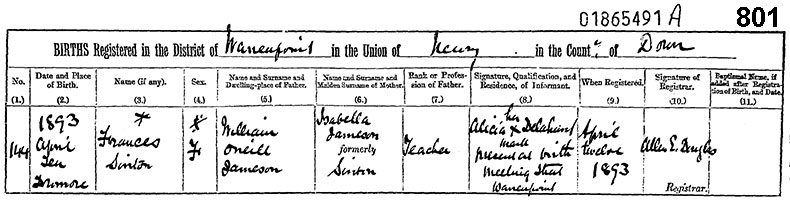 01865491 A 801
BIRTHS Registered in the District of Warrenpoint in the Union of Newry in the Count of Down
No. Date and Place of Birth. Name (if any). Sex. Name and Surname and Dwelling-place of Father. Name and Surname and Maiden Surname of Mother. Rank or Profession of Father. Signature, Qualification, and Residence, of Informant. When Registered. Signature of Registrar. Baptismal Name, if added after Registration of Birth, and Date.
(1.) (2.) (3.) (4.) (5.) (6.) (7.) (8.) (9.) (10.) (11.)
144
1893
April
Ten
Frances
Sinton
F
William
Oneill
Jameson
Isabella
Jameson
formerly
Sinton
Teacher
her
Alicia x
mark
present at birth
Meeting Street
Warrenpoint
April
twelve
1893
Allen E. Douglas
Registrar.